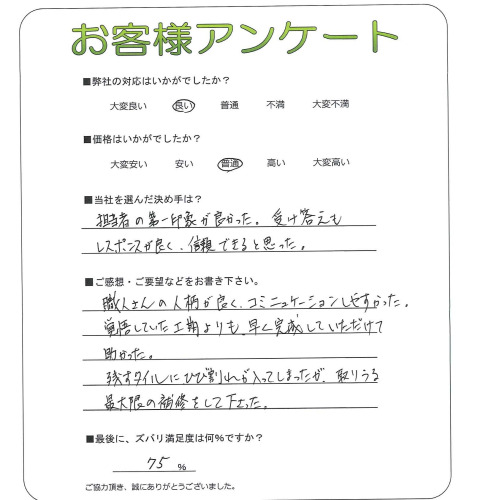 お客様アンケート
■弊社の対応はいかがでしたか?
大変良い 良い 普通 不満 大変不満
■価格はいかがでしたか?
大変安い 安い 普通 高い 大変高い
■当社を選んだ決め手は?
担当者の第一印象が良かった。受け答えも
レスポンスが良く、信頼できると思った。
■ご感想・ご要望などをお書き下さい。
職人さんの人柄が良く、コミニュケーションしやすかった。
覚悟していた工期よりも、早く完成していただけて
助かった。
残すタイルにひび割れが入ってしまったが、取りうる
最大限の補修をして下さった。
■最後に、ズバリ満足度は何%ですか?
75 %
ご協力頂き、誠にありがとうございました。